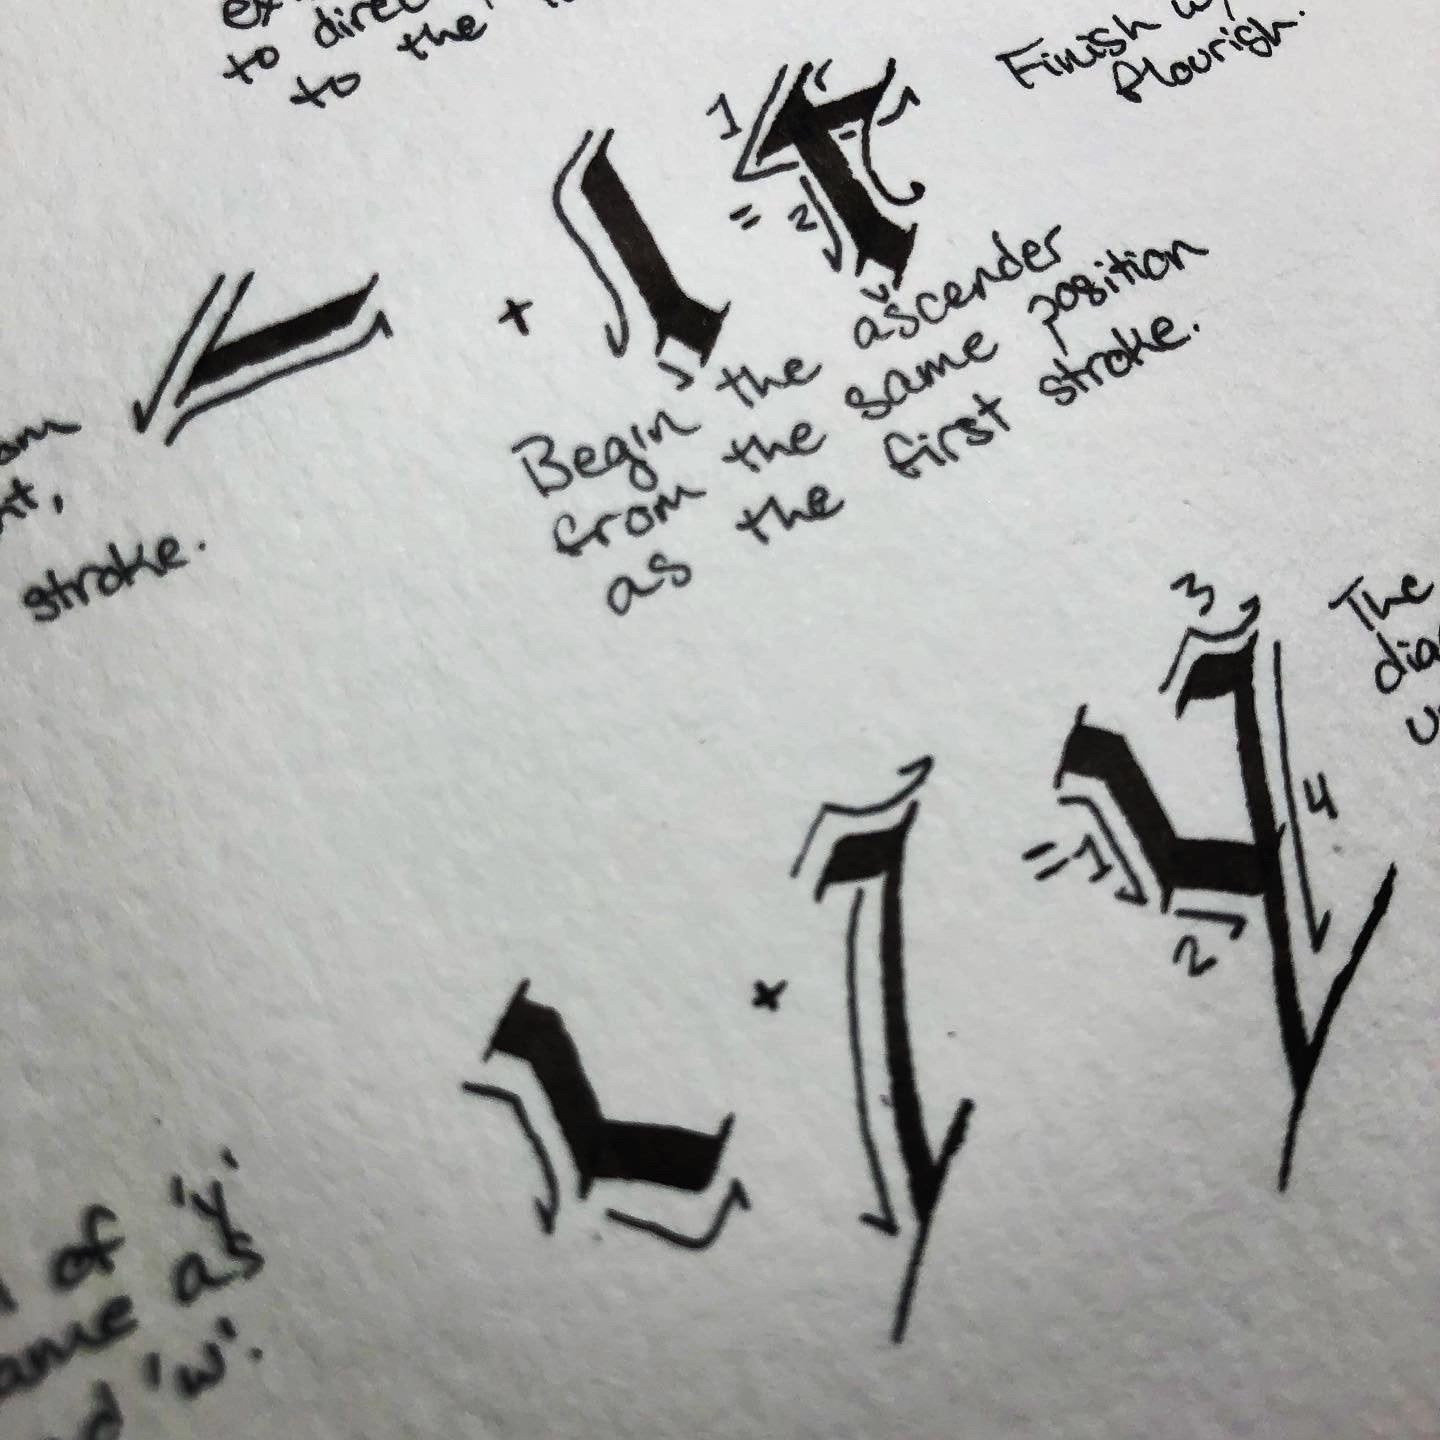 to direc
to the
Finish w/
flourish.
1
+
= 2
Begin the ascender
from the same position
as the first stroke.
stroke.
3
The
4
+
= 1
2
of 'y'
as
'w'.